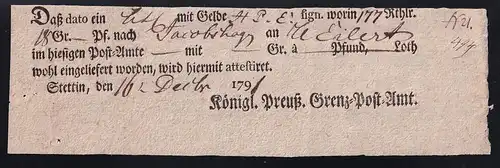 Daß dato ein mit Gelde H. P. E. sign. worin 177 Rthlr.
18 Gr. — Pf. nach Jacobshag an Eilert
im hiesigen Post-Amte — mit — Gr. à — Pfund, — Loth
wohl eingeliefert worden, wird hiermit attestiret.
Stettin, den 16t Decbr 1791
Königl. Preuß. Grenz-Post-Amt.